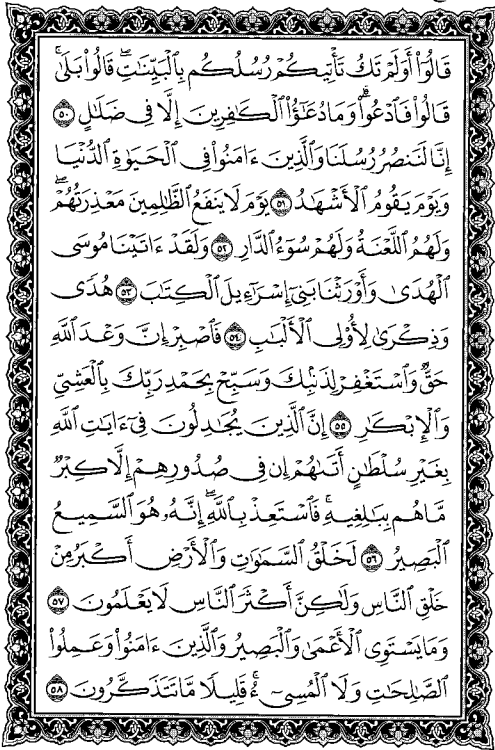 قَالُوٓا۟ أَوَلَمْ تَكُ تَأْتِيكُمْ رُسُلُكُم بِٱلْبَيِّنَٰتِ ۖ قَالُوا۟ بَلَىٰ ۚ
قَالُوا۟ فَٱدْعُوا۟ ۗ وَمَا دُعَٰٓؤُا۟ ٱلْكَٰفِرِينَ إِلَّا فِى ضَلَٰلٍ ٥٠
إِنَّا لَنَنصُرُ رُسُلَنَا وَٱلَّذِينَ ءَامَنُوا۟ فِى ٱلْحَيَوٰةِ ٱلدُّنْيَا
وَيَوْمَ يَقُومُ ٱلْأَشْهَٰدُ ٥١ يَوْمَ لَا يَنفَعُ ٱلظَّٰلِمِينَ مَعْذِرَتُهُمْ ۖ
وَلَهُمُ ٱللَّعْنَةُ وَلَهُمْ سُوٓءُ ٱلدَّارِ ٥٢ وَلَقَدْ ءَاتَيْنَا مُوسَى
ٱلْهُدَىٰ وَأَوْرَثْنَا بَنِىٓ إِسْرَٰٓءِيلَ ٱلْكِتَٰبَ ٥٣ هُدًى
وَذِكْرَىٰ لِأُو۟لِى ٱلْأَلْبَٰبِ ٥٤ فَٱصْبِرْ إِنَّ وَعْدَ ٱللَّهِ
حَقٌّ وَٱسْتَغْفِرْ لِذَنۢبِكَ وَسَبِّحْ بِحَمْدِ رَبِّكَ بِٱلْعَشِىِّ
وَٱلْإِبْكَٰرِ ٥٥ إِنَّ ٱلَّذِينَ يُجَٰدِلُونَ فِىٓ ءَايَٰتِ ٱللَّهِ
بِغَيْرِ سُلْطَٰنٍ أَتَىٰهُمْ ۙ إِن فِى صُدُورِهِمْ إِلَّا كِبْرٌ
مَّا هُم بِبَٰلِغِيهِ ۚ فَٱسْتَعِذْ بِٱللَّهِ ۖ إِنَّهُۥ هُوَ ٱلسَّمِيعُ
ٱلْبَصِيرُ ٥٦ لَخَلْقُ ٱلسَّمَٰوَٰتِ وَٱلْأَرْضِ أَكْبَرُ مِنْ
خَلْقِ ٱلنَّاسِ وَلَٰكِنَّ أَكْثَرَ ٱلنَّاسِ لَا يَعْلَمُونَ ٥٧
وَمَا يَسْتَوِى ٱلْأَعْمَىٰ وَٱلْبَصِيرُ وَٱلَّذِينَ ءَامَنُوا۟ وَعَمِلُوا۟
ٱلصَّٰلِحَٰتِ وَلَا ٱلْمُسِىٓءُ ۚ قَلِيلًا مَّا تَتَذَكَّرُونَ ٥٨